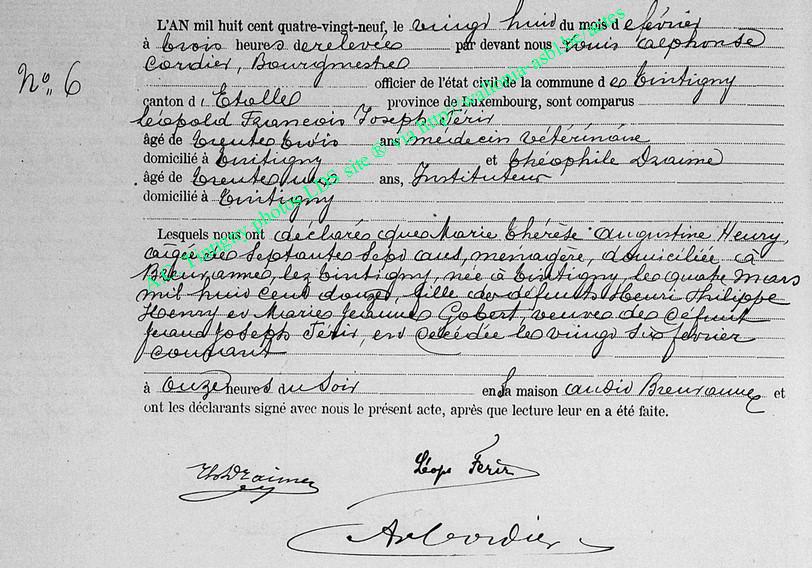 L'AN mil huit cent quatre-vingt-neuf, le vingt huit du mois de février
à trois heures de relevée par devant nous Louis Alphonse
Cordier, Bourgmestre
officier de l'état civil de la commune de Tintigny
N° 6
canton d'Etalle province de Luxembourg, sont comparus
Léopold François Joseph Férir
âgé de trente trois ans médecin vétérinaire
domicilié à Tintigny et Théophile Draime
âgé de trente ans, Instituteur
domicilié à Tintigny
Lesquels nous ont déclaré que Marie Thérèse Augustine Henry,
âgée de septante sept ans, ménagère, domiciliée à
Breuvanne, lez Tintigny, née à Tintigny, le quatre mars
mil huit cent douze, fille de défunts Henri Philippe
Henry et Marie Jeanne Gobert, veuve de défunt
Jean Joseph Férir, est décédée le vingt six février
courant
à onze heures du soir en sa maison audit Breuvanne et
ont les déclarants signé avec nous le présent acte, après que lecture leur en a été faite.
Th Draime
Léop Ferir
A Cordier
Tintigny photos LDS site ® via http://